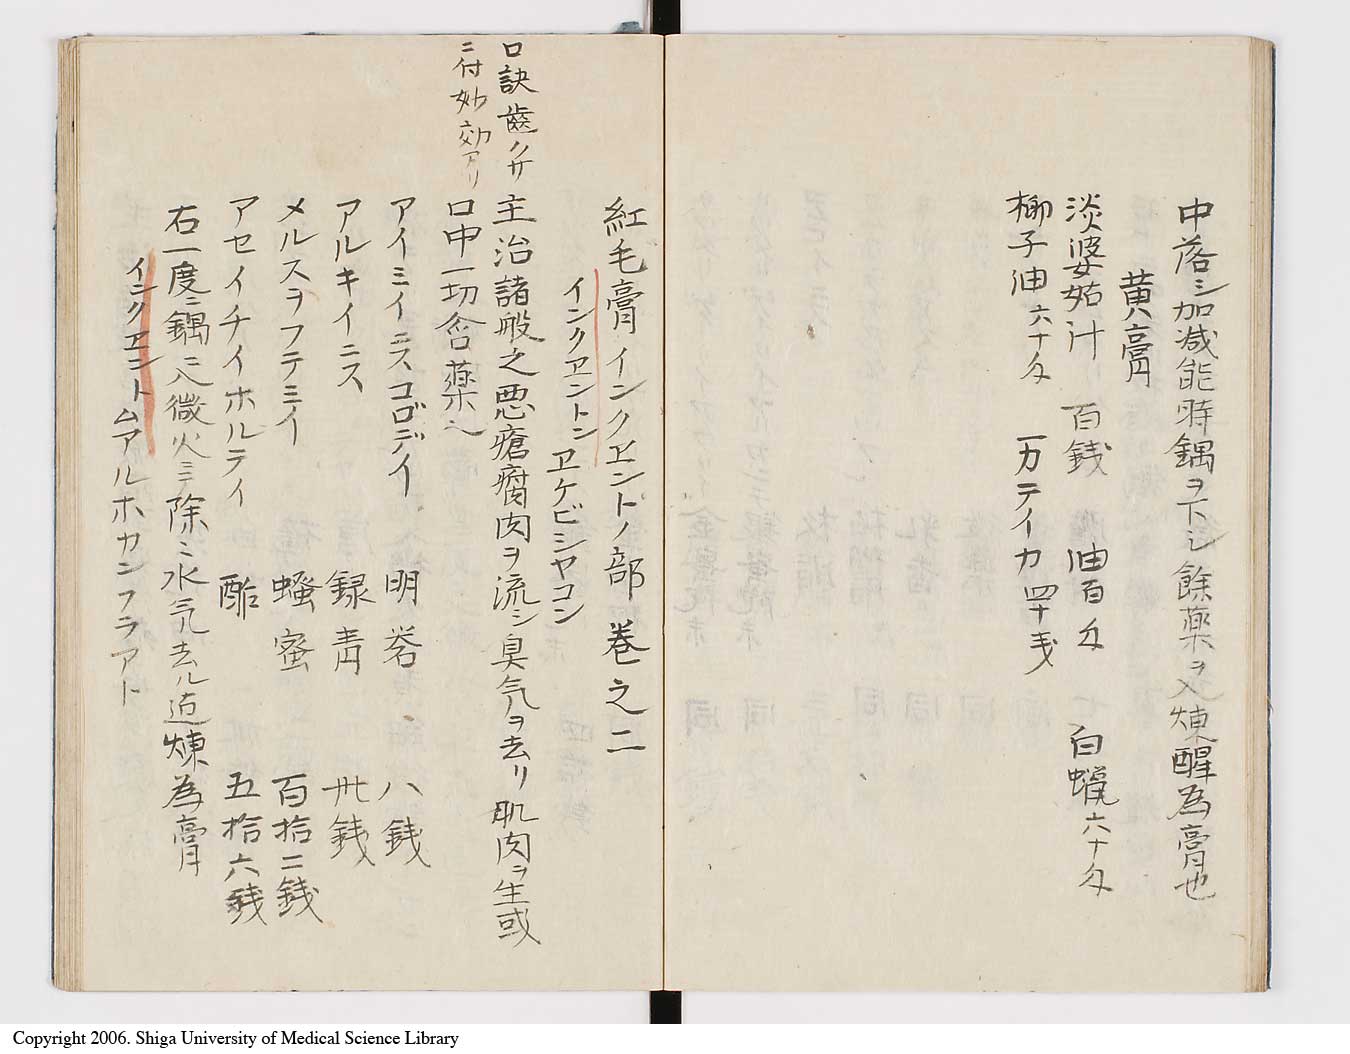 中落シ加減能時鍋ヲ下シ餘藥ヲ入煉醒為膏也
黄膏
淡婆姑汁 百銭 油百匁 白蠟六十匁
椰子油六十匁 一カテイカ四十戔
紅毛膏インクヱントノ部 巻之二
インクヱントン ヱケビシヤコン
口訣齒クサ
ニ付妙効アリ
主治諸般之悪瘡腐肉ヲ流シ臭気ヲ去リ肌肉ヲ生或
口中一切含藥ニ
アイミイニスコロデイ 明礬 八銭
アルキイニス 録青 卅銭
メルスヲフテミイ 蜜 百拾二銭
アセイチイホルテイ 酢 五拾六銭
右一度ニ鍋ニ入微火ミテ除ニ水気去ル迠煉為膏
インクヱントムアルホカンフラアト
Copyright 2006. Shiga University of Medical Science Library